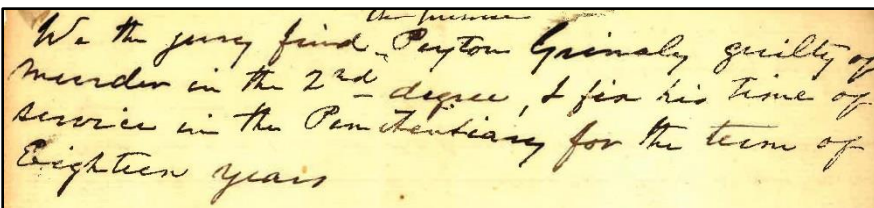 the prisoner
We the jury find Peyton Grimsly guilty of
murder in the 2nd degree, & fix his time of
service in the Penitentiary for the term of
Eighteen years